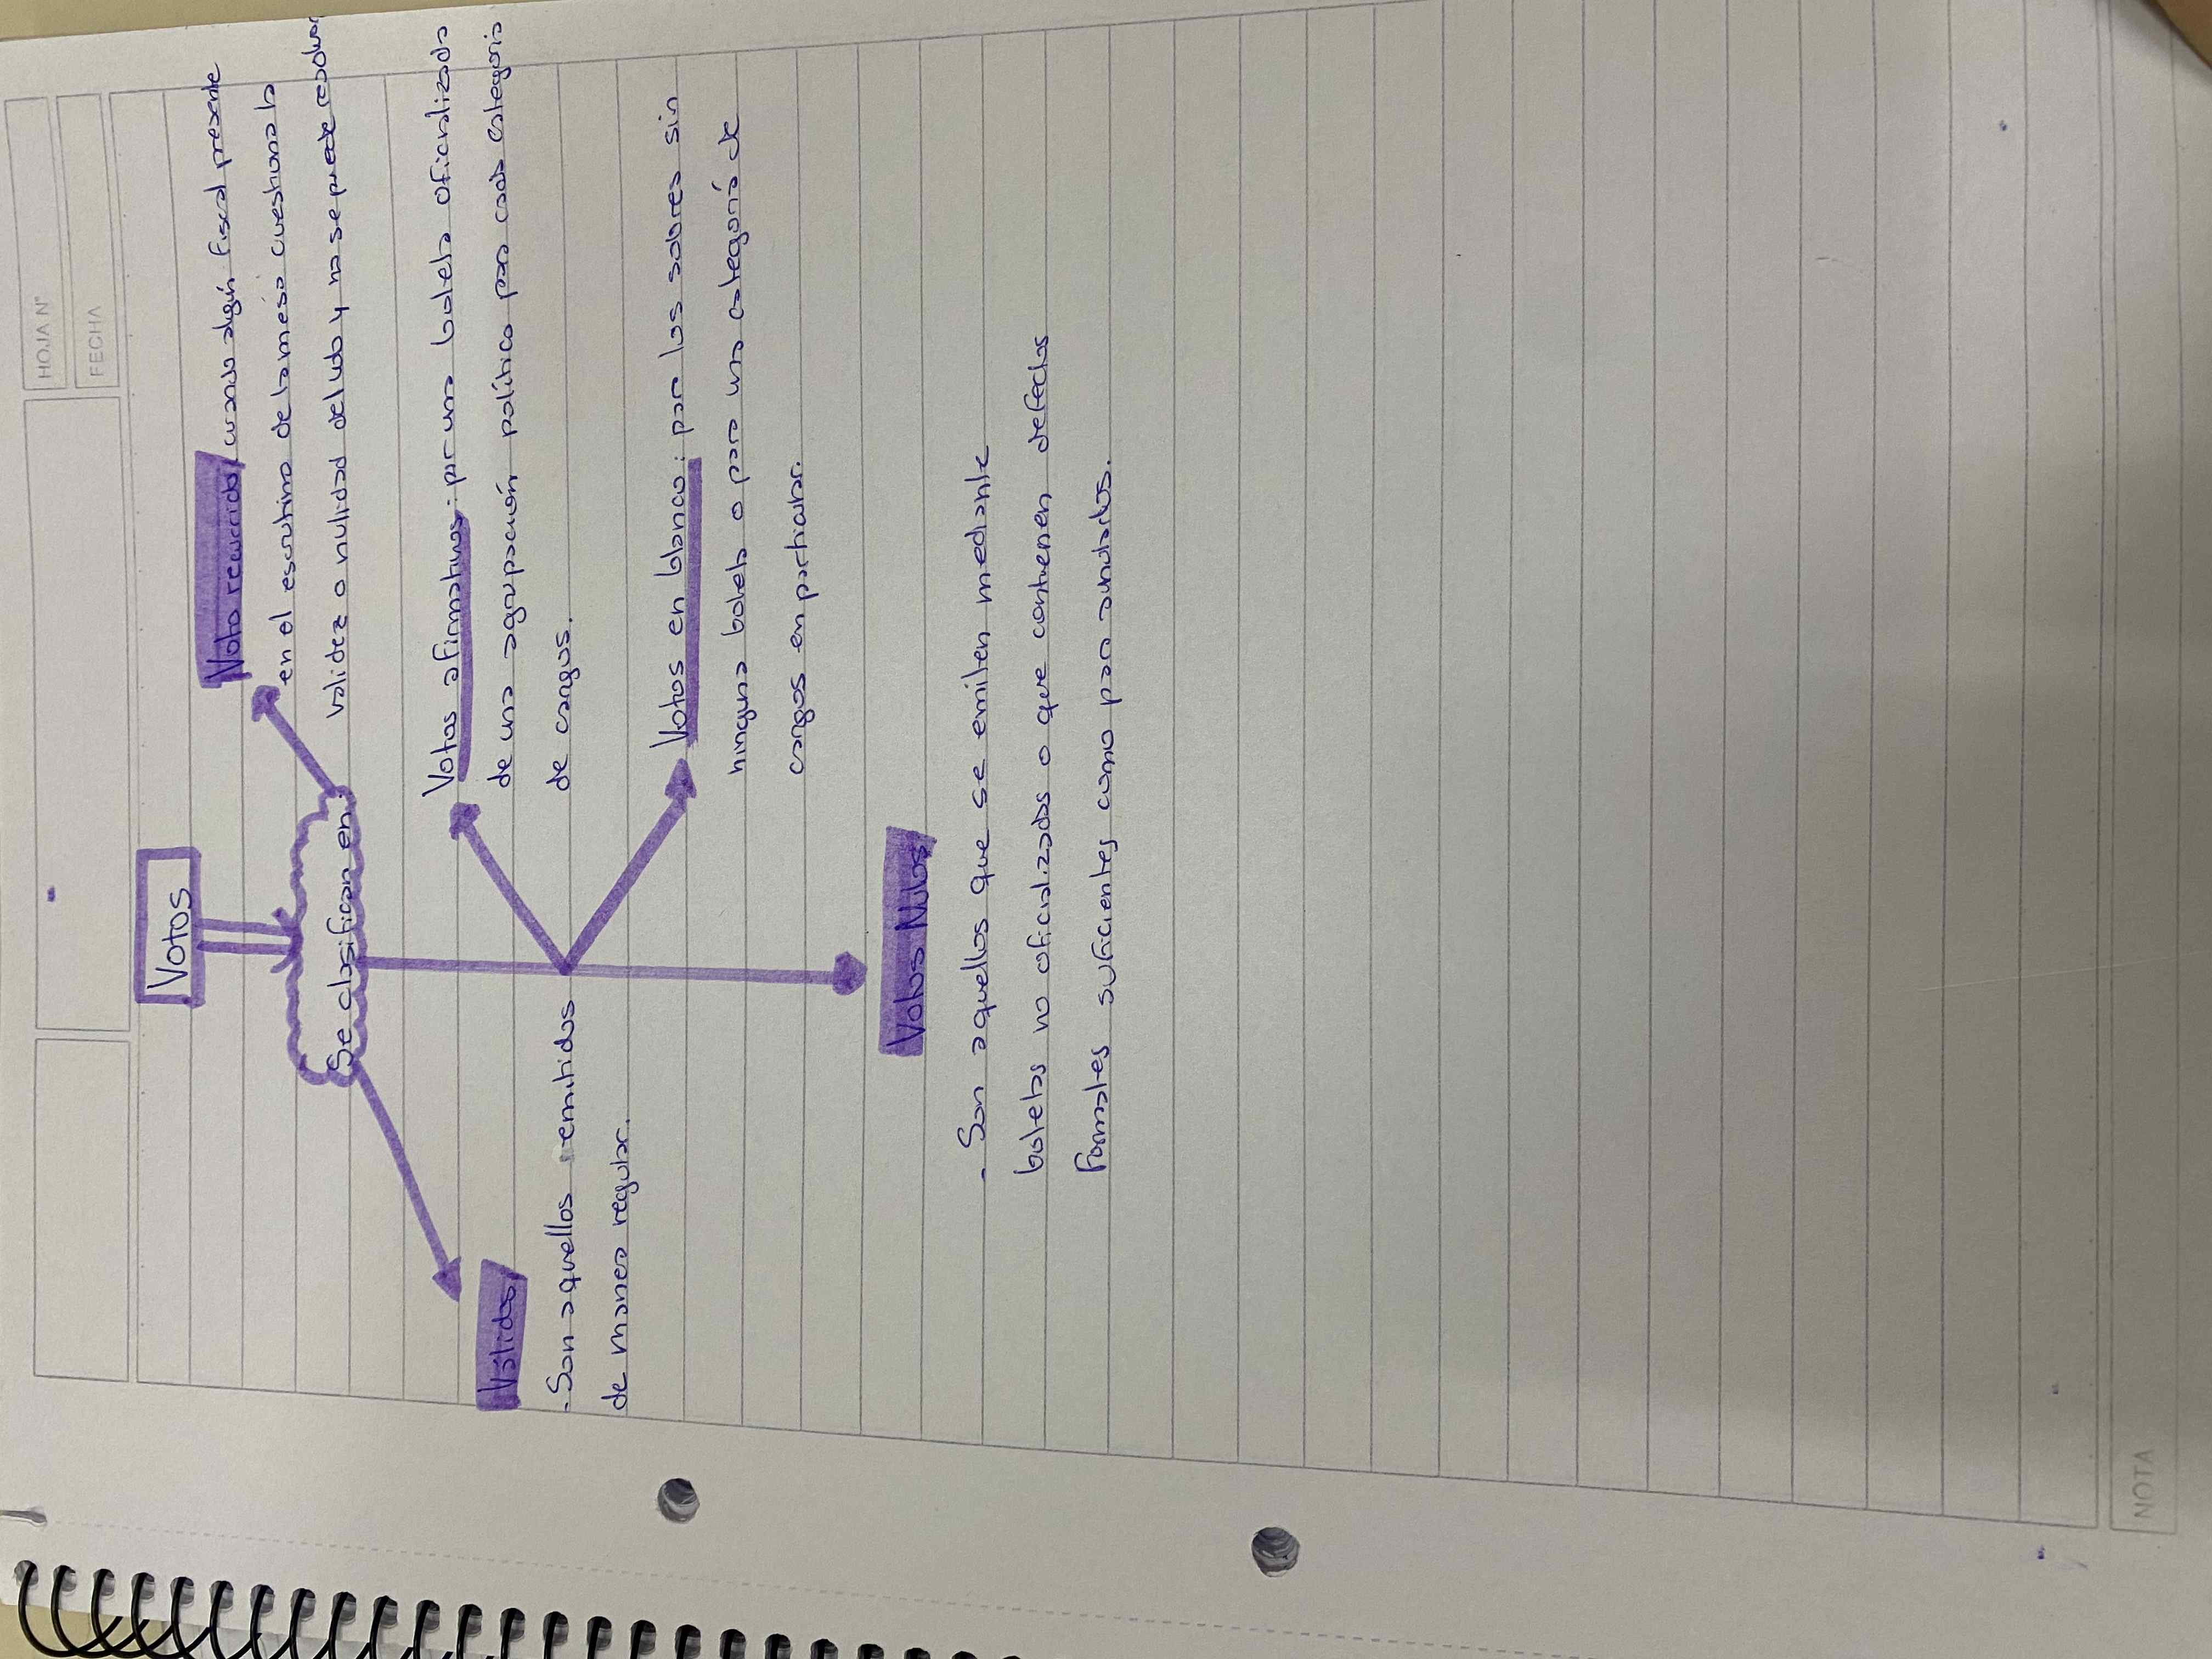 HOJA N°
FECHA
Votos
Se clasifican en:
Voto recurrido: cuando algún fiscal presente
en el escrutinio de la mesa cuestiona la
validez o nulidad del voto y no se puede resolver
Votos afirmativos: por una boleta oficializada
de una agrupación política para cada categoria
de cargos.
Votos en blanco: por los sobres sin
ninguna boleta o para una categoría de
cargos en particular.
Válidos
- Son aquellos emitidos
de manera regular.
Votos Nulos
- Son aquellos que se emiten mediante
boletas no oficializadas o que contienen defectos
formales suficientes como para anularlos.
NOTA